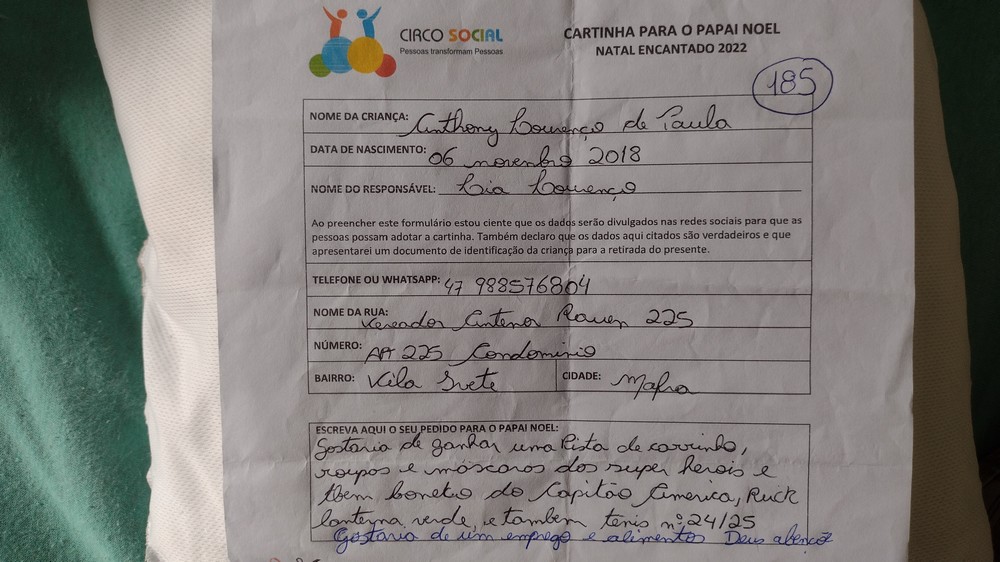 CIRCO SOCIAL
Pessoas transformam Pessoas
CARTINHA PARA O PAPAI NOEL
NATAL ENCANTADO 2022
185
NOME DA CRIANÇA: Anthony Lourenço de Paula
DATA DE NASCIMENTO: 06 novembro 2018
NOME DO RESPONSÁVEL: Lia Lourenço
Ao preencher este formulário estou ciente que os dados serão divulgados nas redes sociais para que as
pessoas possam adotar a cartinha. Também declaro que os dados aqui citados são verdadeiros e que
apresentarei um documento de identificação da criança para a retirada do presente.
TELEFONE OU WHATSAPP: 47 988576804
NOME DA RUA: Vereador Antenor Rauen 225
NÚMERO: AP 225 Condominio
BAIRRO: Vila Ivete CIDADE: Mafra
ESCREVA AQUI O SEU PEDIDO PARA O PAPAI NOEL:
Gostaria de ganhar uma Pista de carrinho,
roupas e máscaras dos super herois e
tbem boneco do Capitão America, Ruck
lanterna verde, e também tenis nº 24/25
Gostaria de um emprego e alimentos Deus abençoe